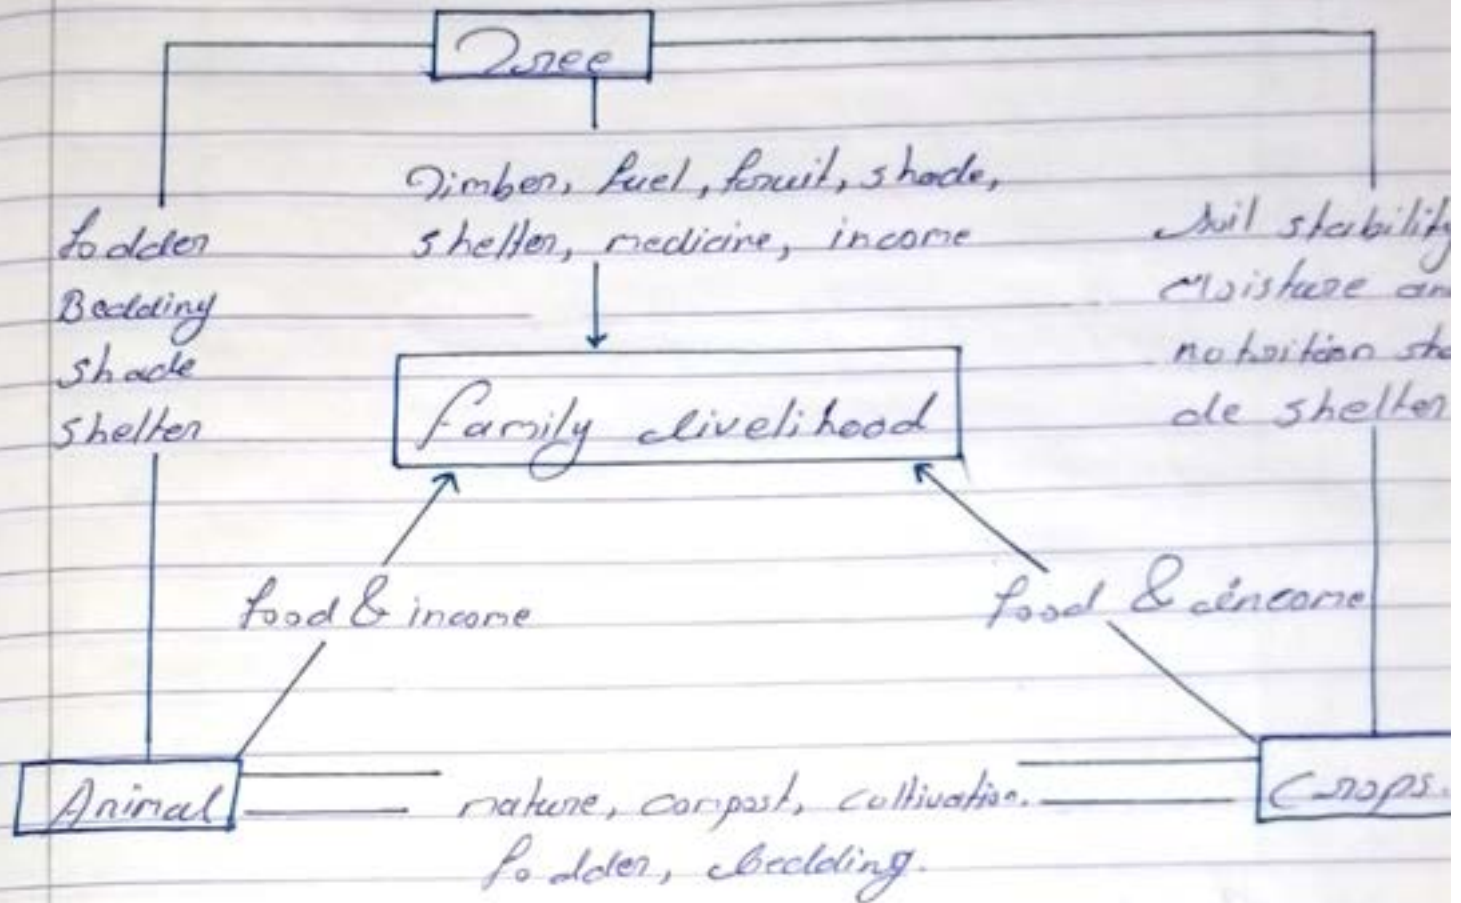 Tree
Timber, fuel, fruit, shade,
shelter, medicine, income
fodder
Bedding
shade
shelter
Soil stability
Moisture an
nutrition sha
de shelter
family livelihood
food & income
food & income
Animal
nature, compost, cultivation.
fodder, bedding.
Crops.